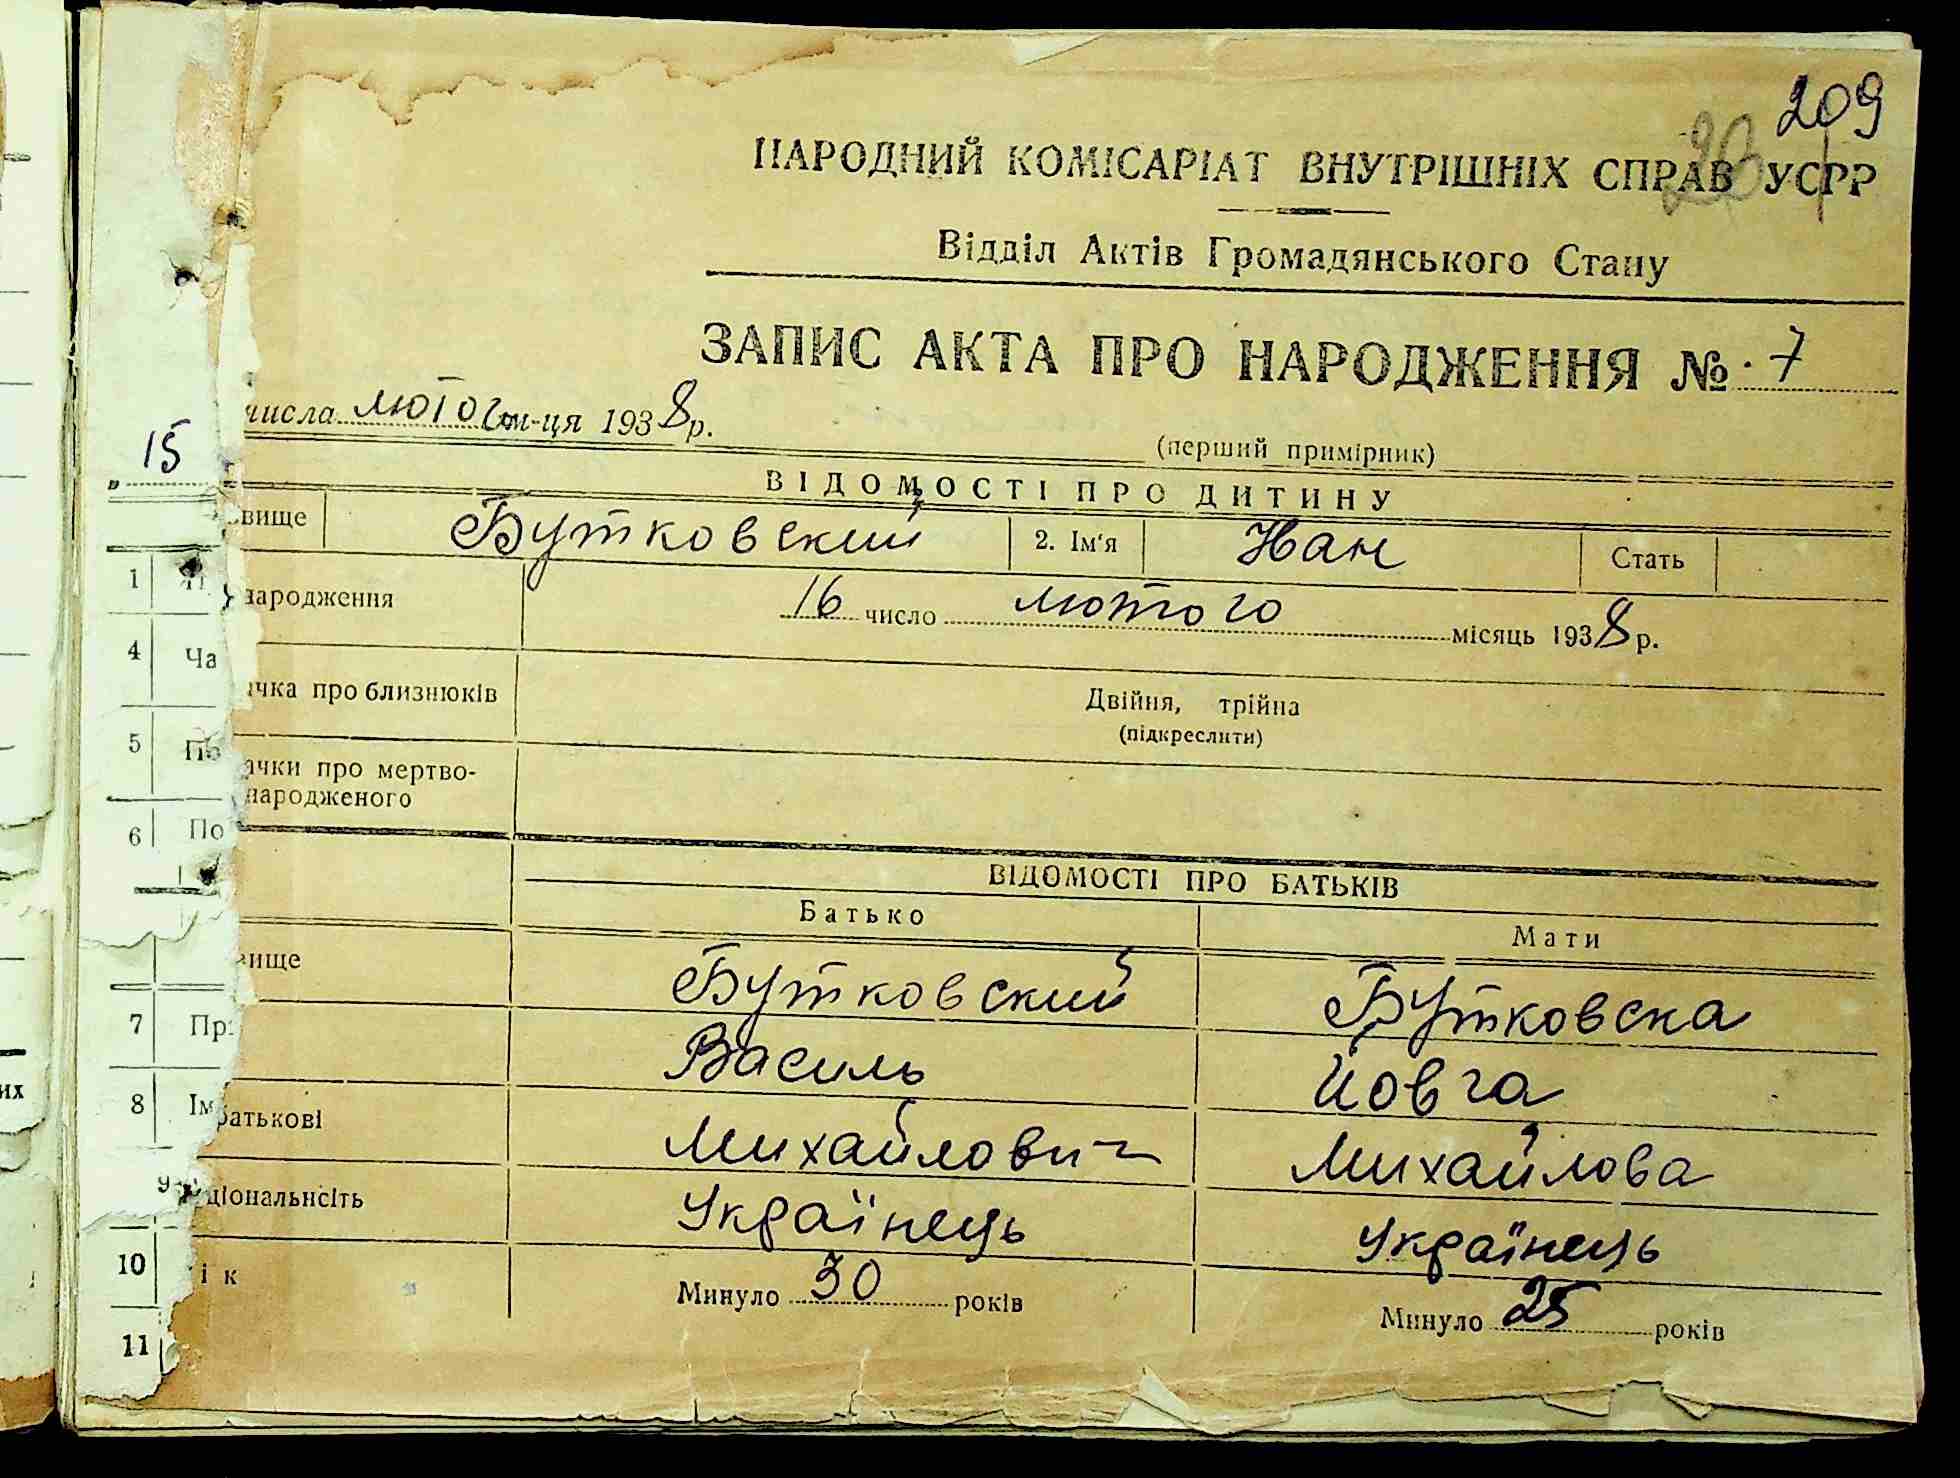 209
НАРОДНИЙ КОМІСАРІАТ ВНУТРІШНІХ СПРАВ УСРР
Відділ Актів Громадянського Стану
ЗАПИС АКТА ПРО НАРОДЖЕННЯ № 7
15 числа лютого м-ця 1938 р.
(перший примірник)
ВІДОМОСТІ ПРО ДИТИНУ
1 вище Бутковский 2. Ім'я Иан Стать
4 Ча народження 16 число лютого місяць 1938 р.
5 По ачка про близнюків Двійня, трійна
(підкреслити)
6 По ачки про мертво-
народженого
ВІДОМОСТІ ПРО БАТЬКІВ
Батько Мати
7 Пр вище Бутковский Бутковска
8 Ім Василь Йовга
9 батькові Михайлович Михайлова
10 ціональнсіть Українець Українець
11 ік Минуло 30 років Минуло 25 років
их